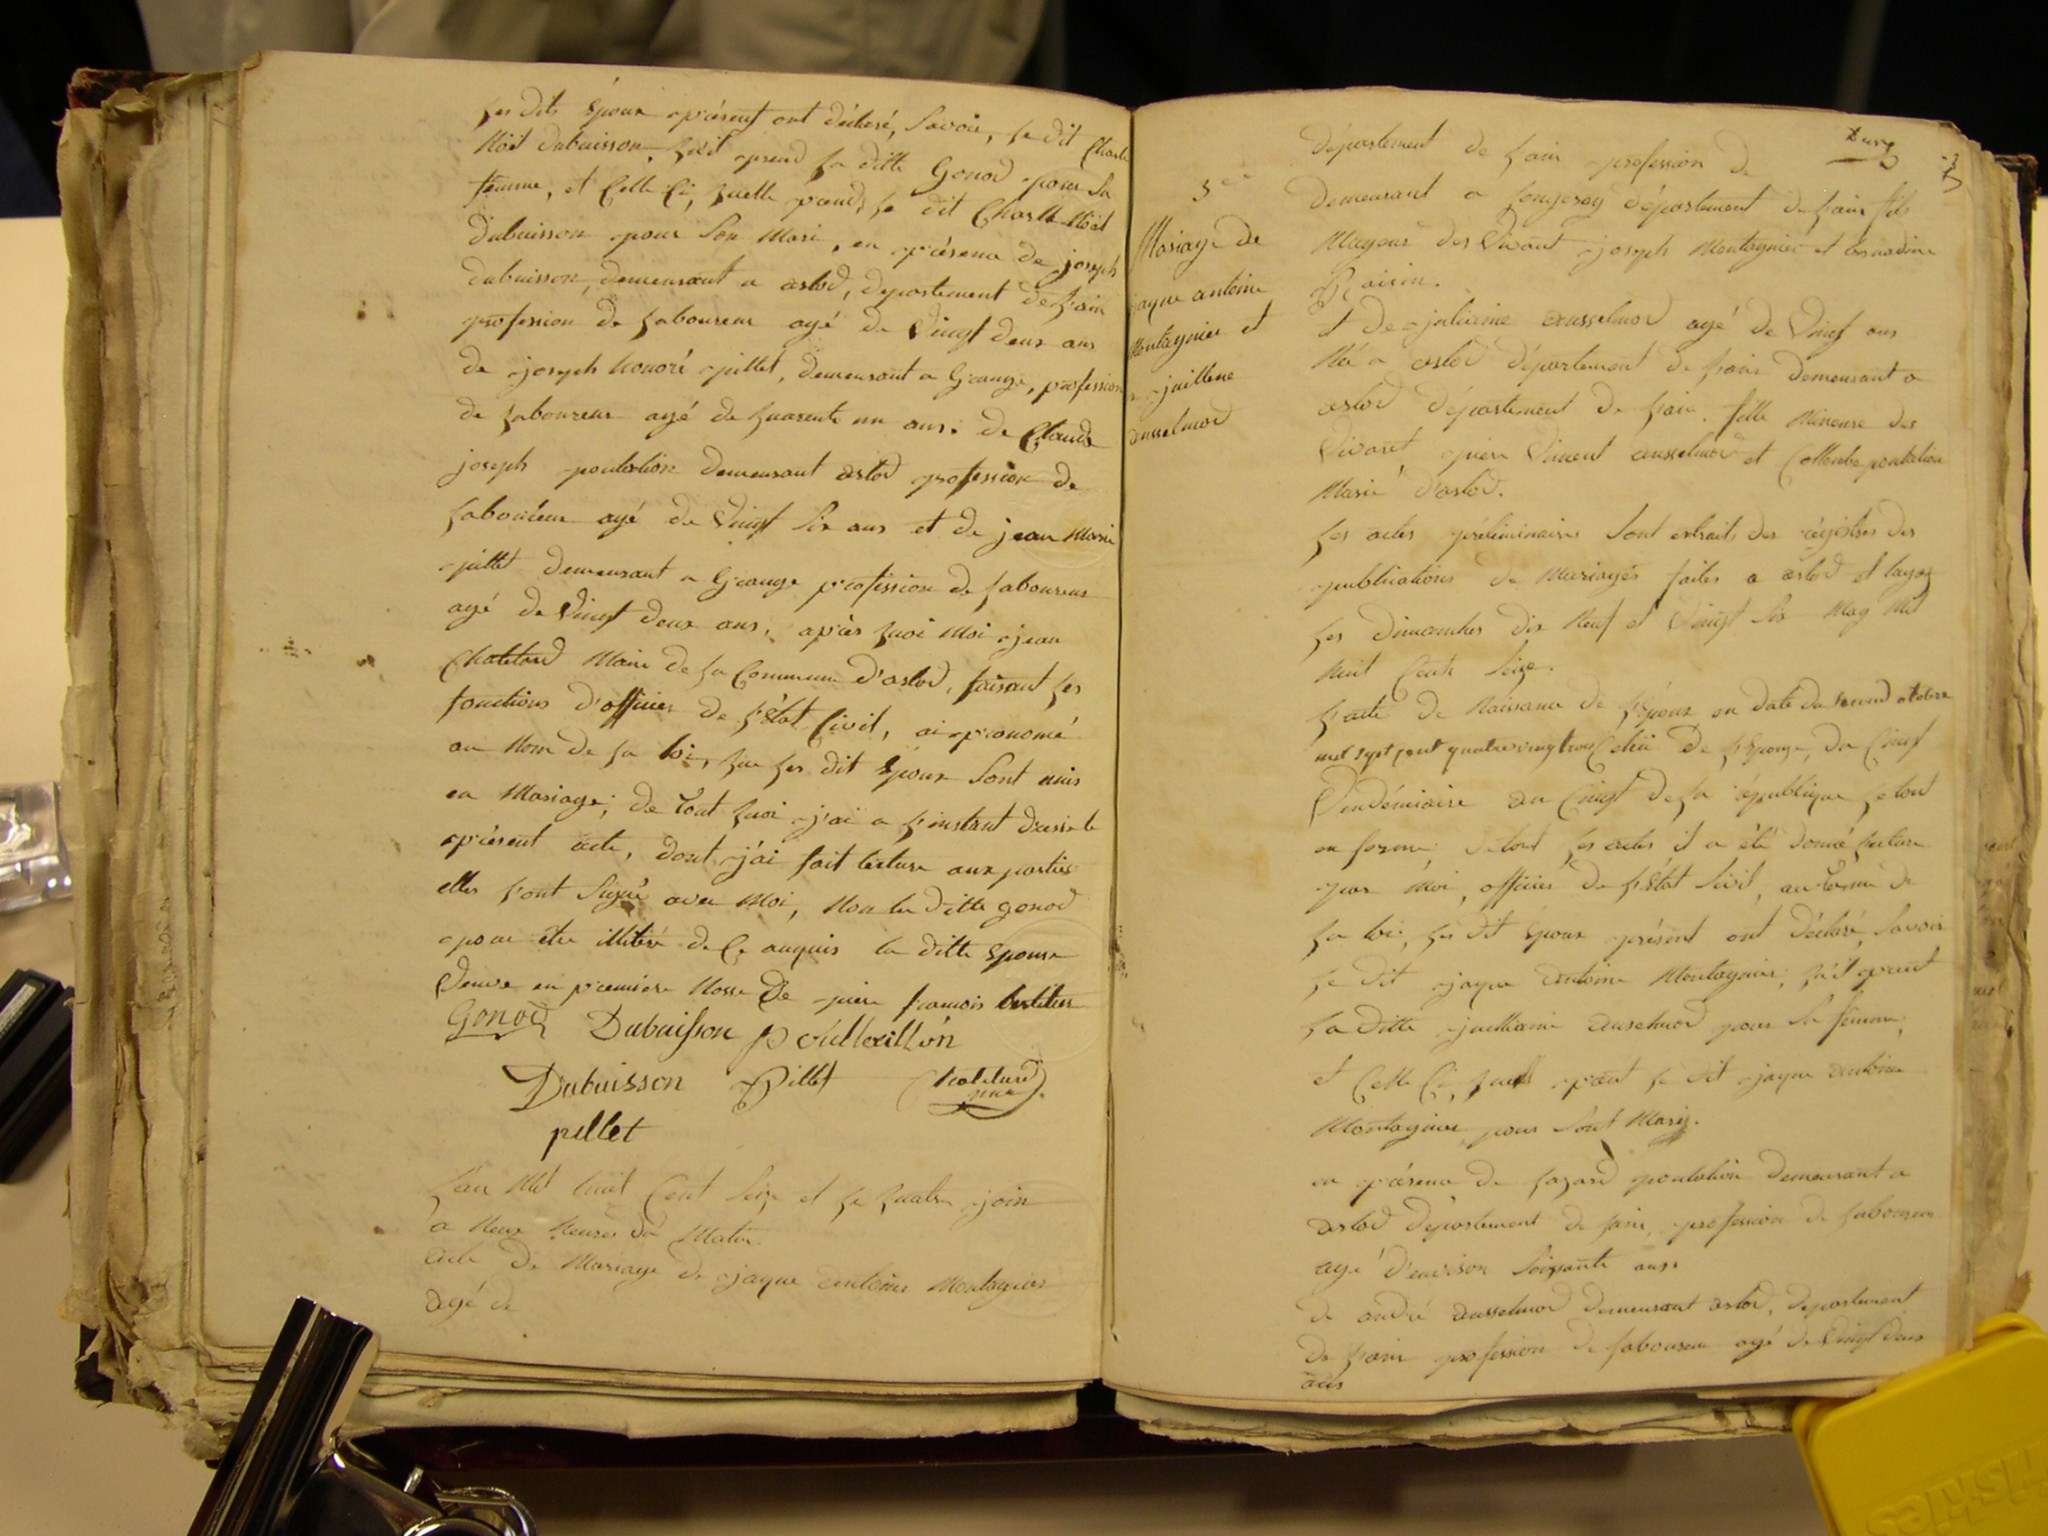 Les dits époux présent ont déclaré, savoir, le dit Charle
Noël Dubuisson, qu'il prend la ditte Gonod pour sa
femme, et Celle Ci, quelle prend, le dit Charle Noël
Dubuisson pour son Mari, en présence de joseph
dubuisson, demeurant a arlod, departement de l'ain
profession de laboureur agé de vingt deux ans
de joseph honoré pillet, demeurant a Grange, profession
de laboureur agé de quarente un ans. de Claude
joseph demeurant arlod profession de
laboureur agé de vingt six ans et de jean Marie
pillet demeurant a Grange profession de laboureur
agé de vingt deux ans, après quoi Moi jean
Chatelard Maire de la Commune d'arlod, faisant les
fonctions d'officier de l'État Civil, ai prononcé
au Nom de la loi, que les dit époux sont unis
en Mariage; de tout quoi j'ai a l'instant dressé le
présent acte, dont j'ai fait lecture aux parties
elles l'ont signé avec Moi, Non la ditte gonod
pour être illitéré de Ce anquis la ditte Epouse
Veuve en premiere Nosse De piere francois
Gonod Dubuisson
Dubuisson Pillet Chatelard
pillet
L'an Mil huit Cent seize et le quatre join
a Neuf heures du Matin
acte De Mariage de jaque antoine Montagnier
agé de
3
Mariage de
jaque antoine
Montagnier et
juillene
ausselmod
Département de l'ain profession de
demeurant a département de l'ain fils
Mageur des Vivant joseph Montagnier et bernadine
Raisin.
et De julienne ausselmod agé de Vingt ans
Né a arlod département de l'ain demeurant a
arlod département de l'ain. fille Mineure des
Vivant, piere Vincent ausselmod et
Marié d'arlod.
Les actes préliminaires sont extraits des régistres des
publications de Mariages faites a arlod et
Les dimanches dix Neuf et Vingt six May Mil
huit Cent seize.
L'acte de Naisance de l'Epoux en date du second octobre
mil sept cent quatre vingt Celui De l'Epouse, du Cinq
Vendémiaire an Cinq de la république le tout
en forme; de tout les actes il a été donné lecture
par Moi, officier de l'État Civil, au terme de
la loi, les dit Époux présent ont Déclaré, savoir
le dit jaque Antoine Montagnier, qu'il prent
la Ditte juillianne auselmod pour sa femme,
et Celle Ci, quell prent le dit jaque antoine
Montagnier pour sont Maris.
en présence de demeurant a
arlod département de l'ain, profession de laboureur
agé d'environ soixante ans
de andré ausselmod demeurant arlod, departement
de l'ain profession de laboureur agé de vingt deux
ans